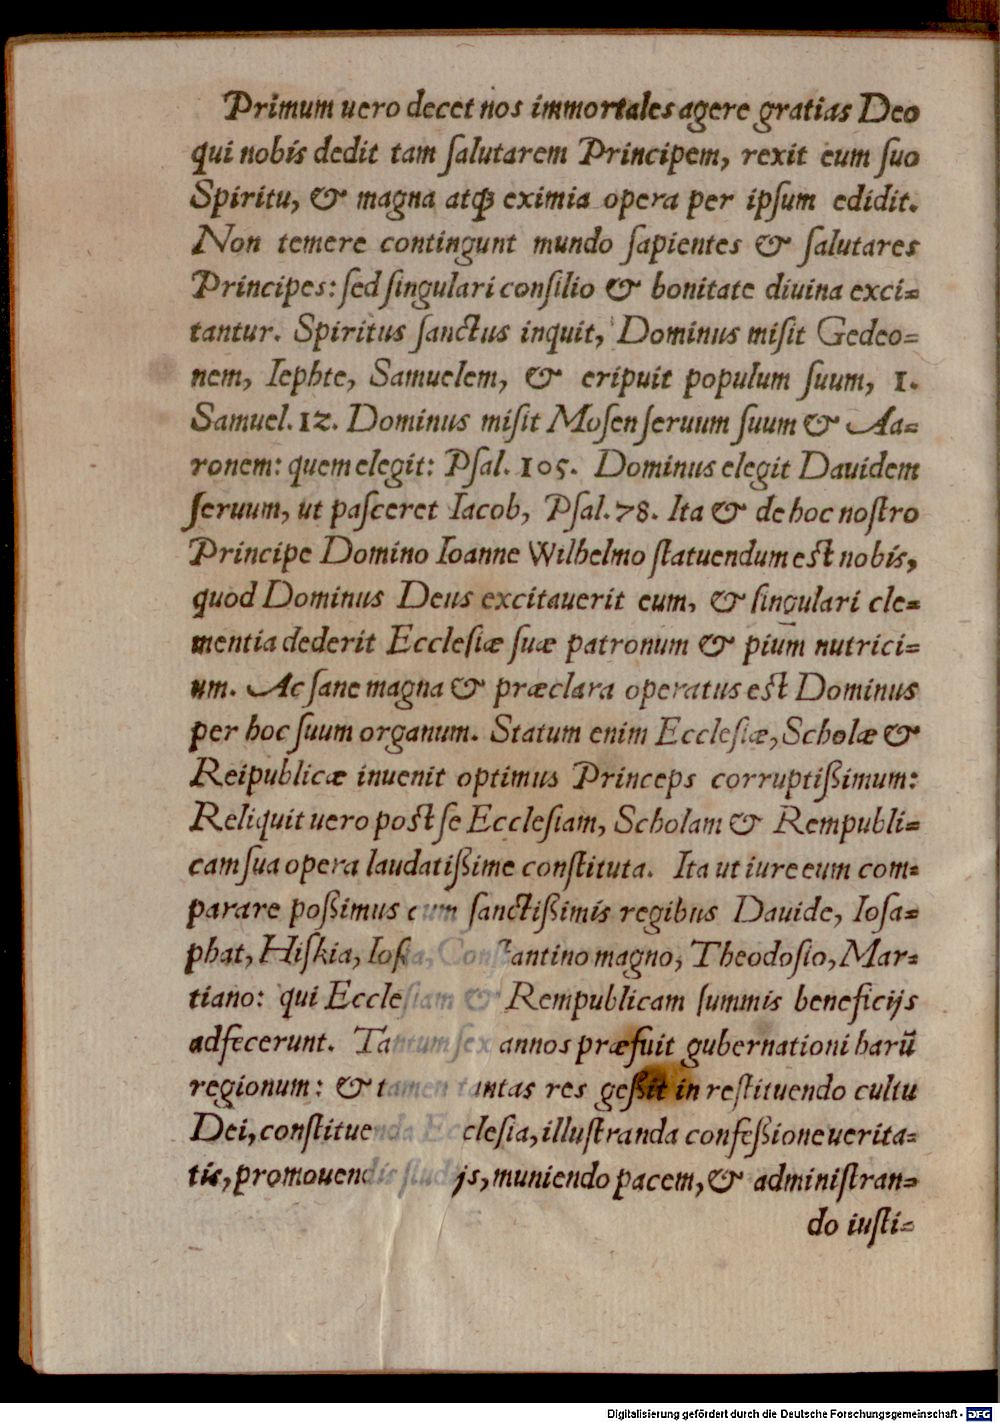 Primum uero decet nos immortales agere gratias Deo
qui nobis dedit tam ſalutarem Principem, rexit eum ſuo
Spiritu, & magna atq́ꝫ eximia opera per ipſum edidit.
Non temere contingunt mundo ſapientes & ſalutares
Principes: ſed ſingulari conſilio & bonitate diuina exci=
tantur. Spiritus ſanctus inquit, Dominus miſit Gedeo=
nem, Iephte, Samuelem, & eripuit populum ſuum, 1.
Samuel. 12. Dominus miſit Moſen ſeruum ſuum & Aa=
ronem: quem elegit: Pſal. 105. Dominus elegit Dauidem
ſeruum, ut paſceret Iacob, Pſal. 78. Ita & de hoc noſtro
Principe Domino Ioanne Wilhelmo ſtatuendum eſt nobis,
quod Dominus Deus excitauerit eum, & ſingulari cle=
mentia dederit Eccleſiæ ſuæ patronum & pium nutrici=
um. Ac ſane magna & præclara operatus eſt Dominus
per hoc ſuum organum. Statum enim Eccleſiæ, Scholæ &
Reipublicæ inuenit optimus Princeps corruptißimum:
Reliquit uero poſt ſe Eccleſiam, Scholam & Rempubli=
cam ſua opera laudatißime conſtituta. Ita ut iure eum com=
parare poßimus cum ſanctißimis regibus Dauide, Ioſa=
phat, Hiſkia, Ioſia, Conſtantino magno, Theodoſio, Mar=
tiano: qui Eccleſiam & Rempublicam ſummis beneficijs
adfecerunt. Tantum ſex annos præfuit gubernationi harū
regionum: & tamen tantas res geßit in reſtituendo cultu
Dei, conſtituenda Eccleſia, illuſtranda confeßione uerita=
tis, promouendis ſtudijs, muniendo pacem, & adminiſtran=
do iuſti=
Digitalisierung gefördert durch die Deutsche Forschungsgemeinschaft - DFG